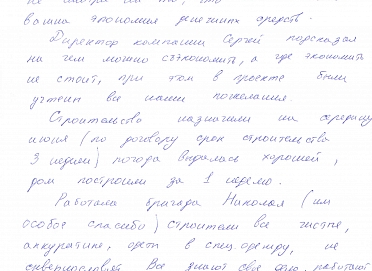 ваша экономия денежных средств.
Директор компании Сергей рассказал
на чем можно съэкономить, а где экономить
не стоит, при этом в проекте были
учтены все наши пожелания.
Строительство назначили на середину
июня (по договору срок строительства
3 недели) погода выдалась хорошей,
дом построили за 1 неделю.
Работала бригада Николая (им
особое спасибо) строители все чистые,
аккуратные, одеты в спец.одежду, не
сквернословят. Все знают свое дело, работают